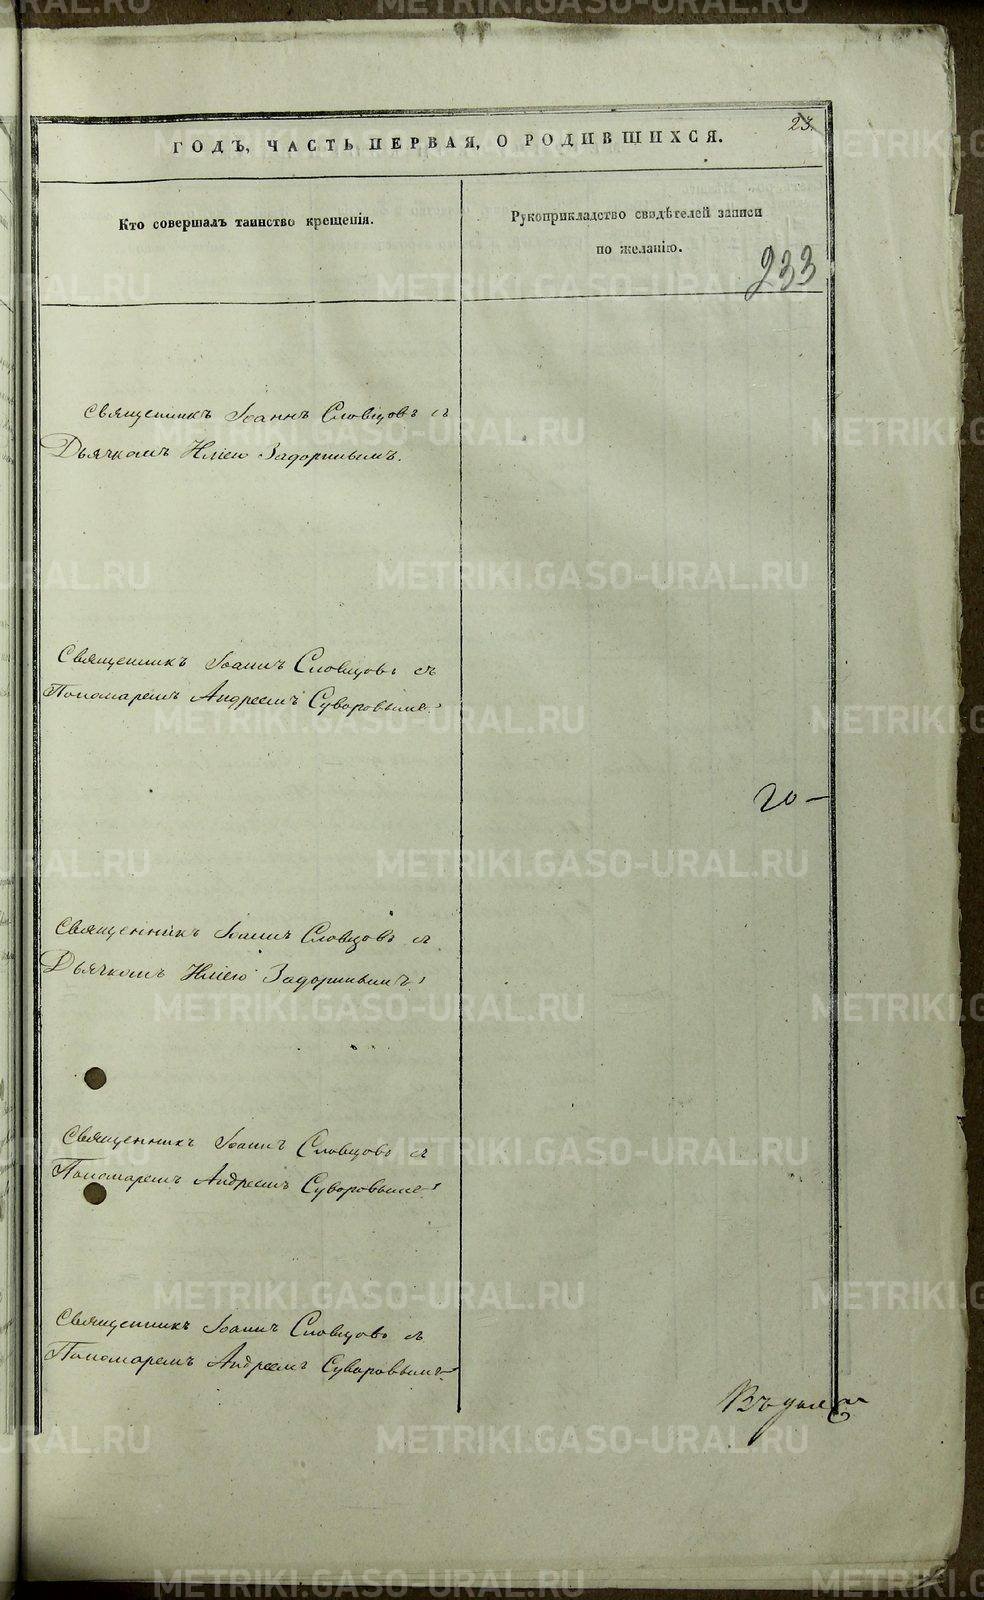 23.
ГОДЪ, ЧАСТЬ ПЕРВАЯ, О РОДИВШИХСЯ.
Кто совершалъ таинство крещенія.
Рукоприкладство свидѣтелей записи
по желанію.
233
Священникъ Іоаннъ Словцовъ съ
Дьячкомъ Иліею Задоринымъ.
Священникъ Іоаннъ Словцовъ съ
Пономаремъ Андреемъ Суворовымъ.
20 –
Священникъ Іоаннъ Словцовъ съ
Дьячкомъ Иліею Задоринымъ.
Священникъ Іоаннъ Словцовъ съ
Пономаремъ Андреемъ Суворовымъ.
Священникъ Іоаннъ Словцовъ съ
Пономаремъ Андреемъ Суворовымъ.
Въ
METRIKI.GASO-URAL.RU